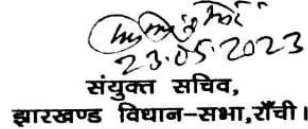 23.05.2023
संयुक्त सचिव,
झारखण्ड विधान-सभा,राँची।